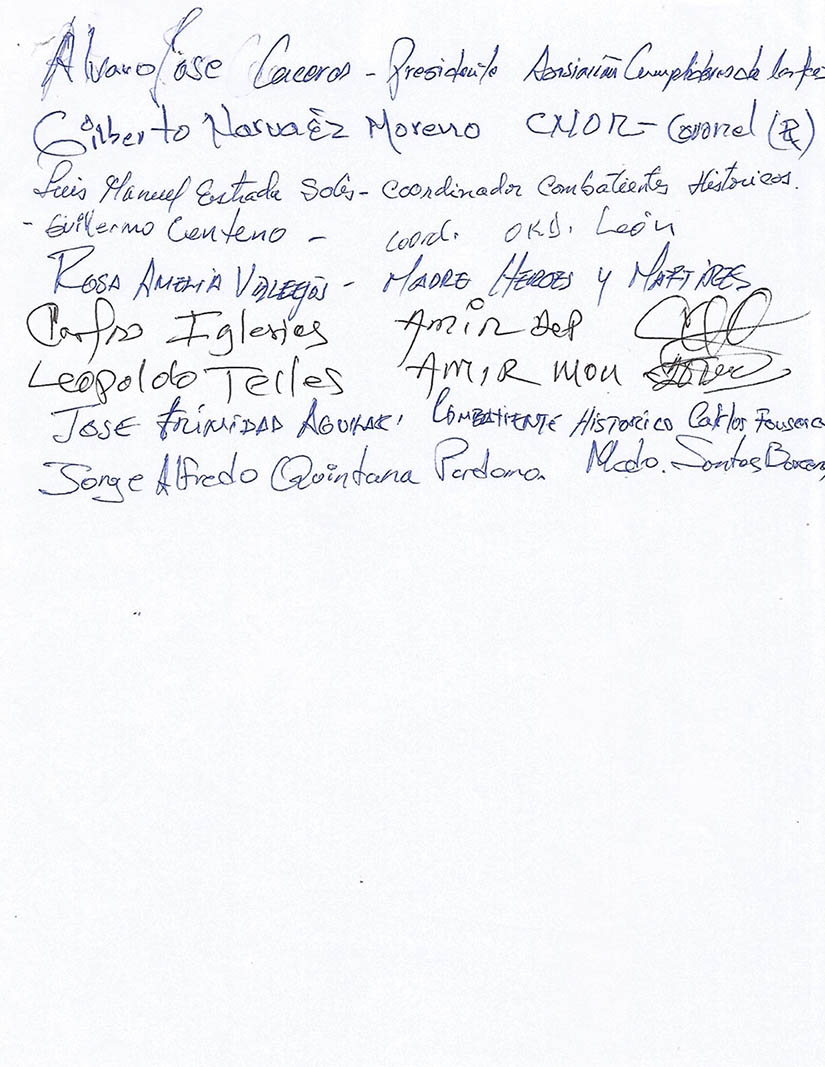 Alvaro Jose Caceros - Presidente Asosiación Cumplidores de la
Gilberto Narvaèz Moreno CNOR - Coronel (R)
Luis Manuel Estrada Solis - Coordinador Combatientes Historicos.
- Guillermo Centeno - coord. OKD. León
ROSA AMELIA VALLEJOS - MADRE HEROES Y MARTIRES
Carlos Iglesias AMIR DEP
Leopoldo Telles AMIR MON
JOSE TRINIDAD AGUILAR, COMBATIENTE HISTORICO Carlos Fonseca
Jorge Alfredo Quintana Perdomo. Mcdo. Santos